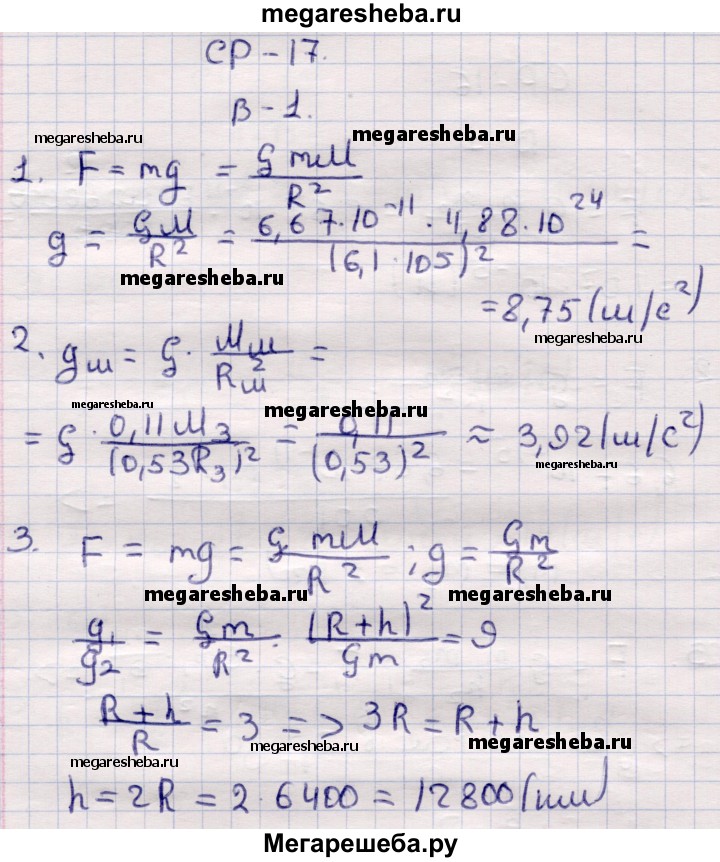 megaresheba.ru
СР-17.
В-1.
megaresheba.ru
megaresheba.ru
1. F = mg = G mM / R²
g = GM / R² = 6,67·10⁻¹¹ · 4,88·10²⁴ / (6,1·105)² =
megaresheba.ru
= 8,75 (м/с²)
megaresheba.ru
2. gм = G · Mм / Rм² =
megaresheba.ru
megaresheba.ru
= G · 0,11 Mз / (0,53Rз)² = 0,11 / (0,53)² ≈ 3,92 (м/с²)
megaresheba.ru
3. F = mg = G mM / R² ; g = Gm / R²
megaresheba.ru
megaresheba.ru
g₁ / g₂ = Gm / R² · (R+h)² / Gm = 9
R+h / R = 3 => 3R = R+h
megaresheba.ru
megaresheba.ru
megaresheba.ru
h = 2R = 2·6400 = 12800 (км)
megaresheba.ru
megaresheba.ru
Мегарешеба.ру